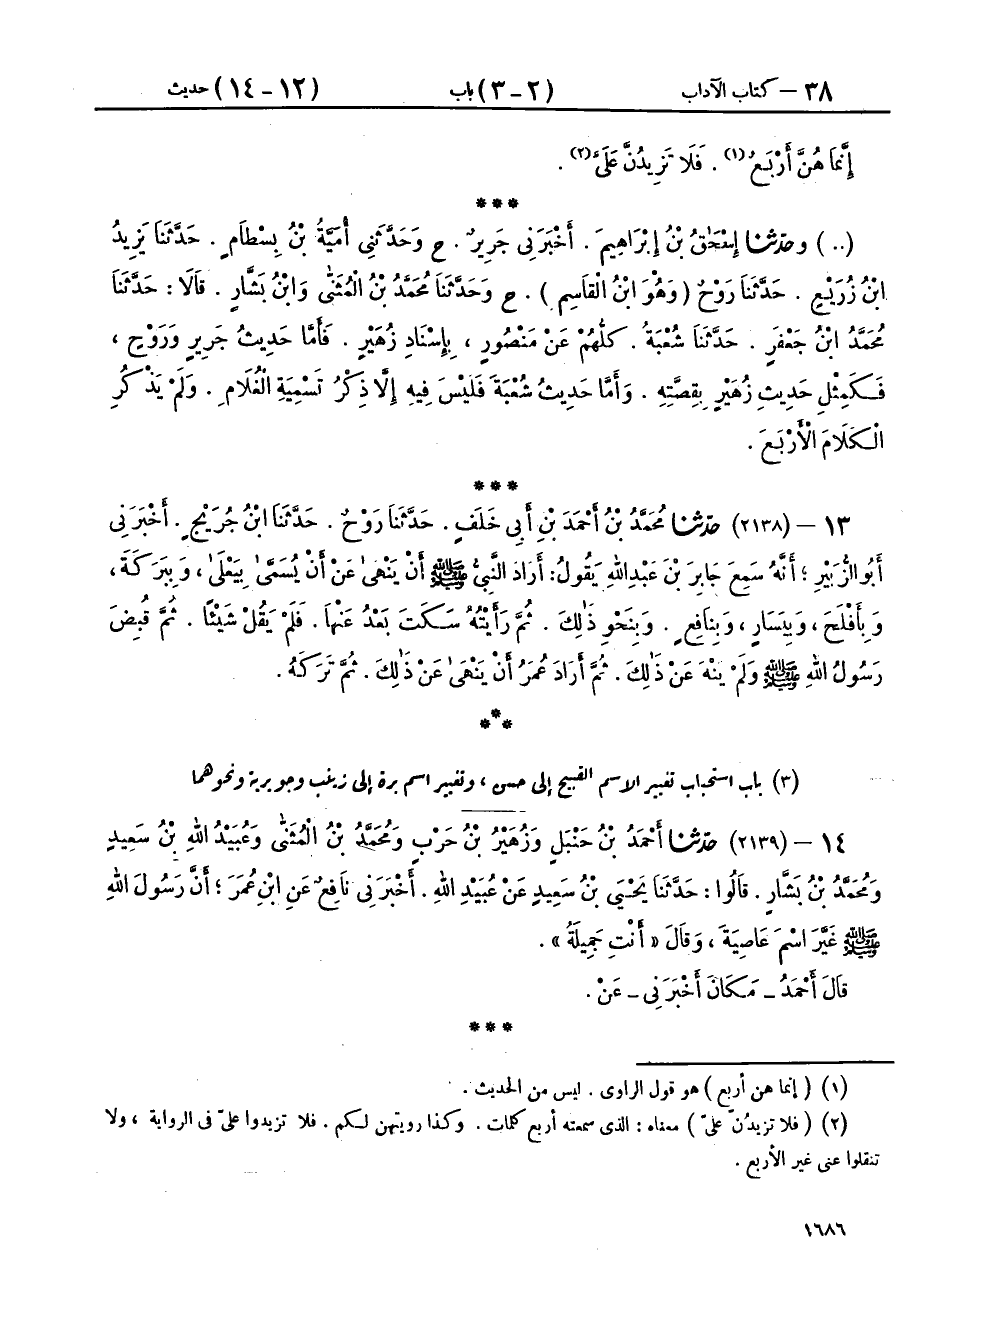 ٣٨ – كتاب الآداب (٢ – ٣) باب (١٢ – ١٤) حديث
إِنَّمَا هُنَّ أَرْبَعٌ(١) . فَلَا تَزِيدُنَّ عَلَيَّ(٢) .
***
(..) وحدّثنا إِسْحَٰقُ بْنُ إِبْرَاهِيمَ . أَخْبَرَنِي جَرِيرٌ . ح وَحَدَّثَنِي أُمَيَّةُ بْنُ بِسْطَامٍ . حَدَّثَنَا يَزِيدُ
ابْنُ زُرَيْعٍ . حَدَّثَنَا رَوْحٌ (وَهُوَ ابْنُ الْقَاسِمِ) . ح وَحَدَّثَنَا مُحَمَّدُ بْنُ الْمُثَنَّى وَابْنُ بَشَّارٍ . قَالَا : حَدَّثَنَا
مُحَمَّدُ ابْنُ جَعْفَرٍ . حَدَّثَنَا شُعْبَةُ . كُلُّهُمْ عَنْ مَنْصُورٍ ، بِإِسْنَادِ زُهَيْرٍ . فَأَمَّا حَدِيثُ جَرِيرٍ وَرَوْحٍ ،
فَكَمِثْلِ حَدِيثِ زُهَيْرٍ بِقِصَّتِهِ . وَأَمَّا حَدِيثُ شُعْبَةَ فَلَيْسَ فِيهِ إِلَّا ذِكْرُ تَسْمِيَةِ الْغُلَامِ . وَلَمْ يَذْكُرِ
الْكَلَامَ الْأَرْبَعَ .
***
١٣ – (٢١٣٨) حدّثنا مُحَمَّدُ بْنُ أَحْمَدَ بْنِ أَبِي خَلَفٍ . حَدَّثَنَا رَوْحٌ . حَدَّثَنَا ابْنُ جُرَيْجٍ . أَخْبَرَنِي
أَبُو الزُّبَيْرِ ؛ أَنَّهُ سَمِعَ جَابِرَ بْنَ عَبْدِ اللهِ يَقُولُ: أَرَادَ النَّبِيُّ ﷺ أَنْ يَنْهَىٰ عَنْ أَنْ يُسَمَّىٰ بِيَعْلَىٰ ، وَبِبَرَكَةَ ،
وَبِأَفْلَحَ ، وَبِيَسَارٍ ، وَبِنَافِعٍ . وَبِنَحْوِ ذَٰلِكَ . ثُمَّ رَأَيْتُهُ سَكَتَ بَعْدُ عَنْهَا . فَلَمْ يَقُلْ شَيْئًا . ثُمَّ قُبِضَ
رَسُولُ اللهِ ﷺ وَلَمْ يَنْهَ عَنْ ذَٰلِكَ . ثُمَّ أَرَادَ عُمَرُ أَنْ يَنْهَىٰ عَنْ ذَٰلِكَ . ثُمَّ تَرَكَهُ .
***
(٣) باب استحباب تغيير الاسم القبيح إلى حسن ، وتغيير اسم برة إلى زينب وجويرية ونحوهما
١٤ – (٢١٣٩) حدّثنا أَحْمَدُ بْنُ حَنْبَلٍ وَزُهَيْرُ بْنُ حَرْبٍ وَمُحَمَّدُ بْنُ الْمُثَنَّىٰ وَعُبَيْدُ اللهِ بْنُ سَعِيدٍ
وَمُحَمَّدُ بْنُ بَشَّارٍ . قَالُوا : حَدَّثَنَا يَحْيَىٰ بْنُ سَعِيدٍ عَنْ عُبَيْدِ اللهِ . أَخْبَرَنِي نَافِعٌ عَنِ ابْنِ عُمَرَ ؛ أَنَّ رَسُولَ اللهِ
ﷺ غَيَّرَ اسْمَ عَاصِيَةَ ، وَقَالَ « أَنْتِ جَمِيلَةُ » .
قَالَ أَحْمَدُ – مَكَانَ أَخْبَرَنِي – عَنْ .
***
(١) (إنما هن أربع) هو قول الراوى . ليس من الحديث .
(٢) (فلا تزيدُنّ علىّ) معناه : الذى سمعته أربع كلمات . وكذا رويتهن لكم . فلا تزيدوا علىّ فى الرواية ، ولا
تنقلوا عنى غير الأربع .
١٦٨٦